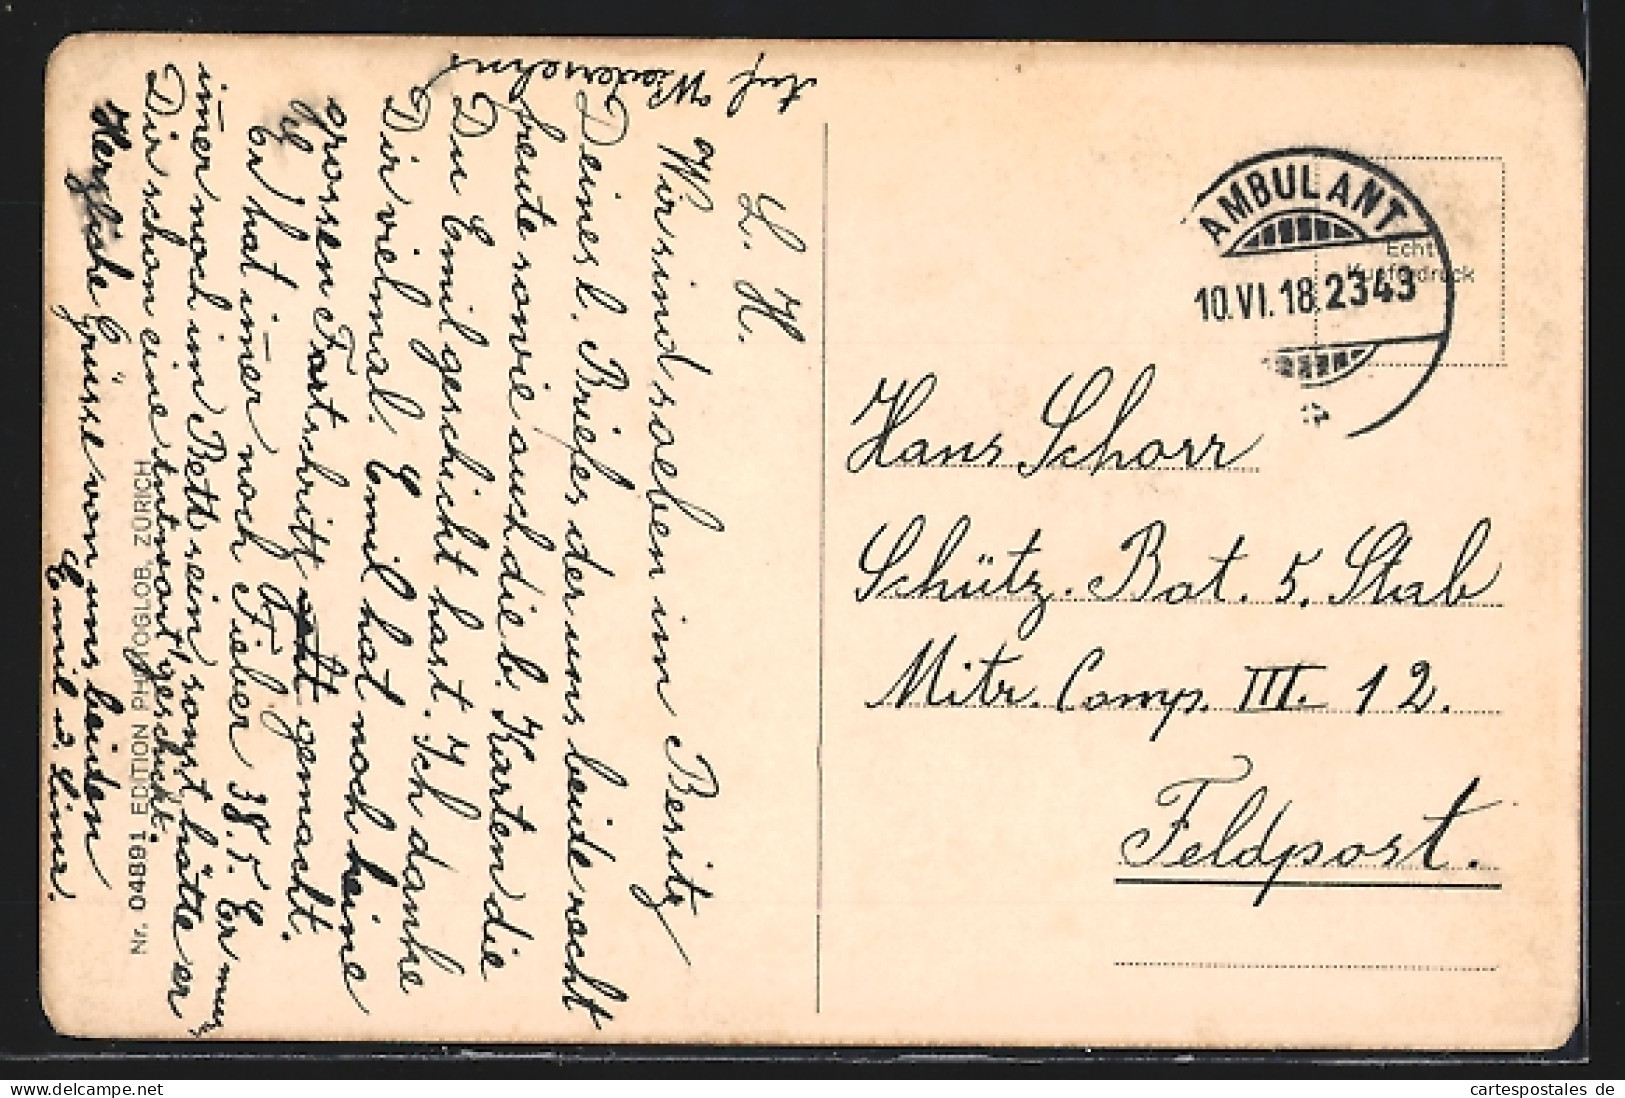 L. H.
Wir sind soeben im Besitz
Deines l. Briefes der uns beide recht
freute sowie auch die b. Karten die
Du Emil geschickt hast. Ich danke
Dir vielmal. Emil hat noch keine
grossen Fortschritt gemacht.
Er hat im̄er noch Fieber 38.5. Er muss
im̄er noch im Bett sein sonst hätte er
Dir schon eine Antwort geschickt.
Herzliche Grüsse von uns beiden
Emil u.
Auf Wiedersehns
Nr. 04891 EDITION PHOTOGLOB, ZÜRICH
AMBULANT
10.VI.18 2343
Echt
Kupferdruck
Hans Schorr
Schütz. Bat. 5. Stab
Mitr. Comp. III. 12.
Feldpost.
cartespostales de